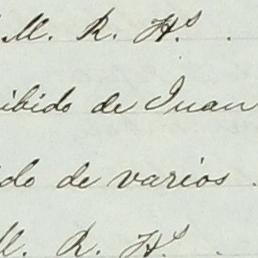 M. R. H.s .
ibido de Juan
do de varios .
M. R. H.s .